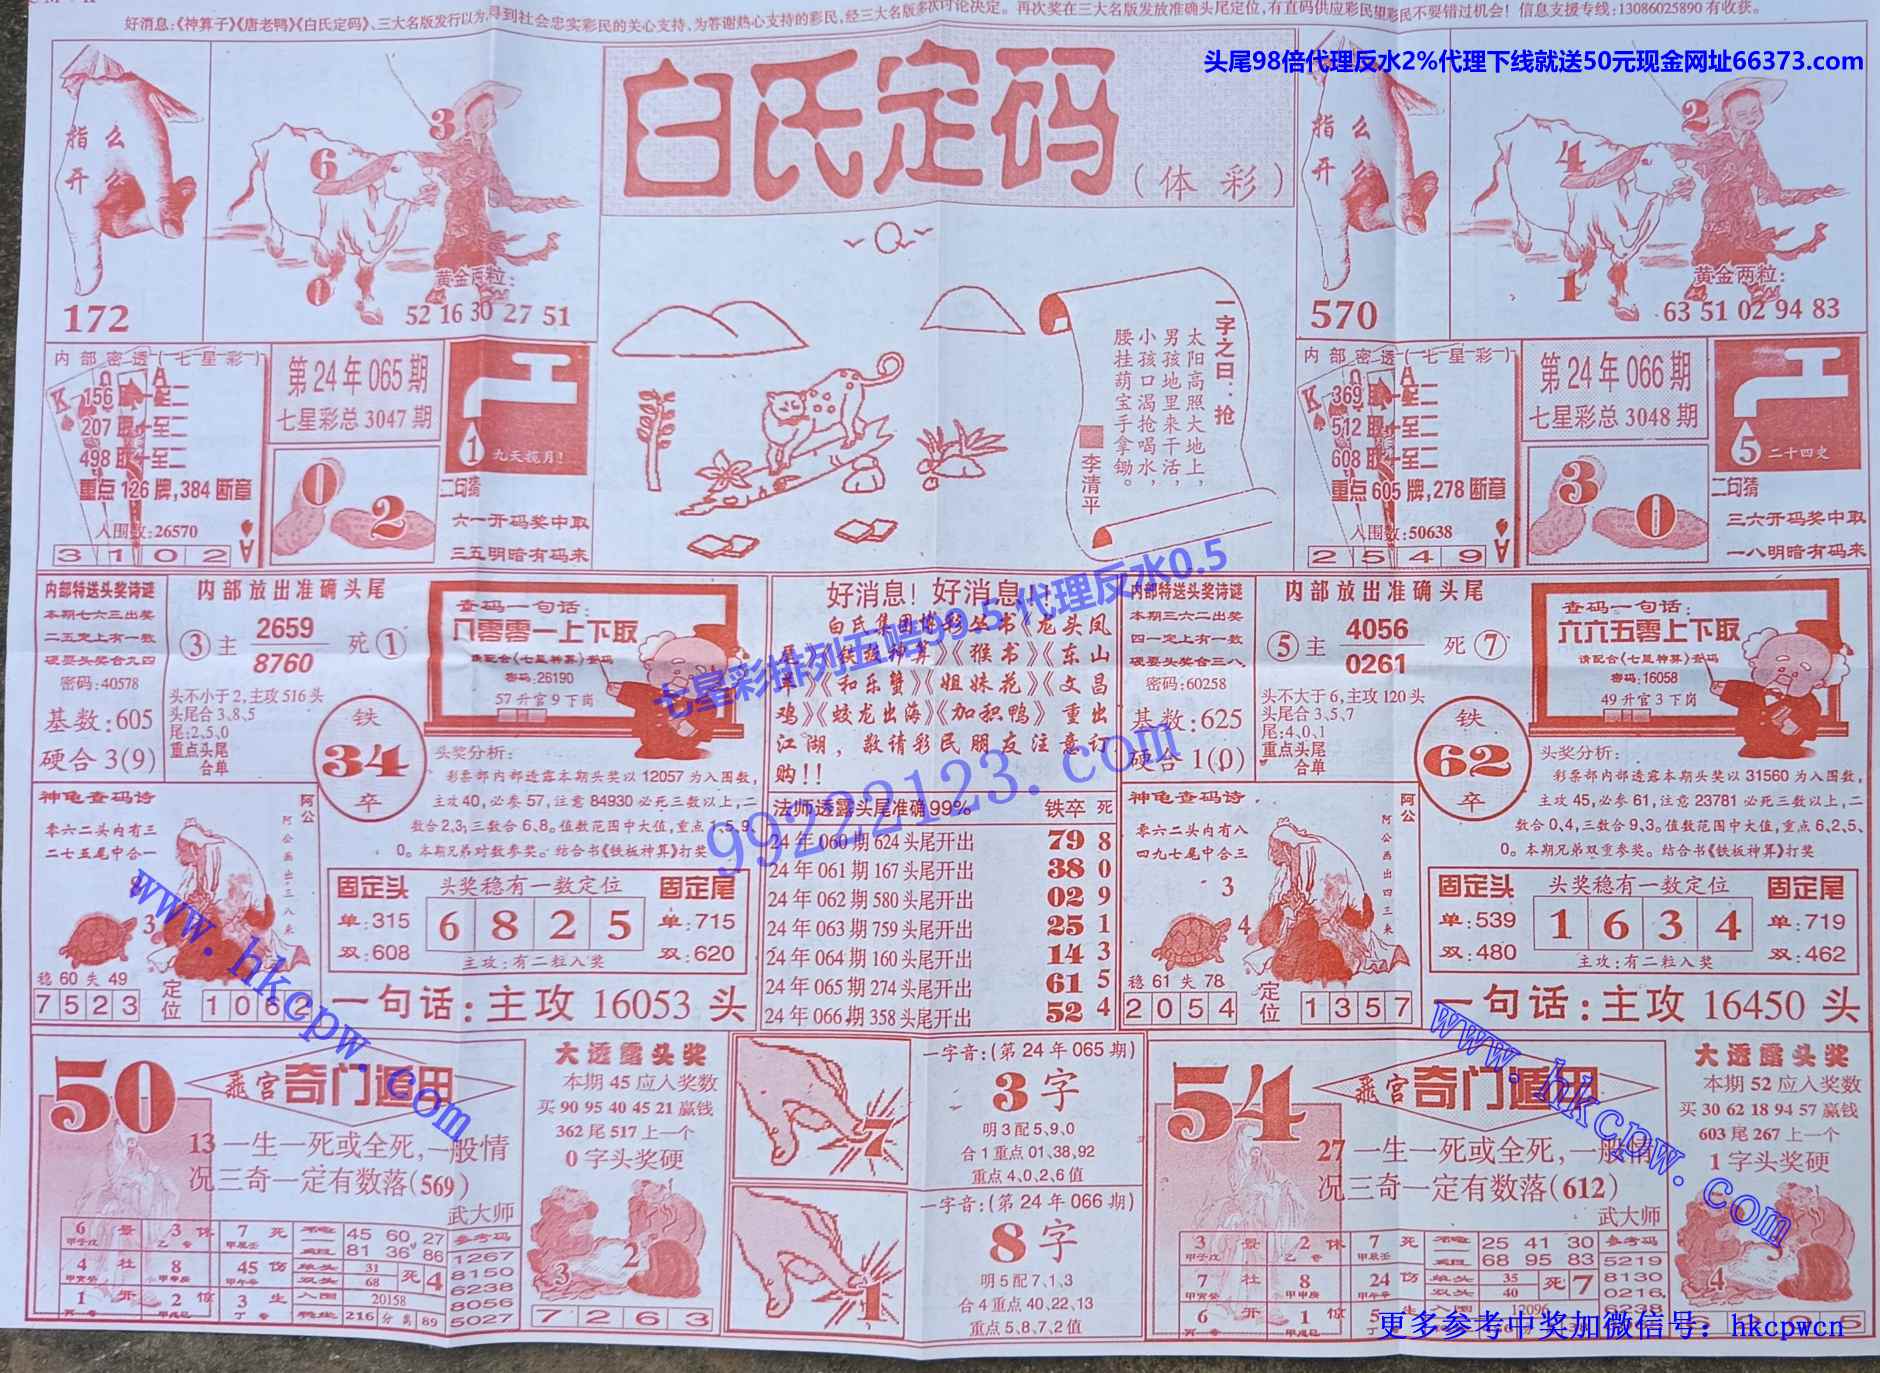 好消息:《神算子》《唐老鸭》《白氏定码》、三大名版发行以为,得到社会忠实彩民的关心支持、为答谢热心支持的彩民,经三大名版多次讨论决定。再次奖在三大名版发放准确头尾定位,有直码供应彩民望彩民不要错过机会！信息支援专线:13086025890有收获。
头尾98倍代理反水2%代理下线就送50元现金网址66373.com
白氏定码
(体彩)
指么
开么
172
3
6
0
黄金两粒:
52 16 30 27 51
内部密透(七星彩)
156
207
498
重点126牌,384断章
入围数:26570
3 1 0 2
第24年065期
七星彩总3047期
0
2
1
九天揽月!
二句猜
六一开码奖中取
三五明暗有码来
一字之曰:抢
太阳高照大地上,
男孩地里来干活,
小孩口渴抢喝水,
腰挂葫宝手拿锄。
李清平
指么
开么
570
2
4
1
黄金两粒:
63 51 02 94 83
内部密透(七星彩)
369
512
608
重点605牌,278断章
入围数:50638
2 5 4 9
第24年066期
七星彩总3048期
3
0
5
二十四史
二句猜
三六开码奖中取
一八明暗有码来
内部特送头奖诗谜
本期七六三出奖
二五定上有一数
硬要头奖合九四
密码:40578
基数:605
硬合3(9)
内部放出准确头尾
③主 2659 死①
8760
头不小于2,主攻516头
头尾合3,8,5
尾:2,5,0
重点头尾
合单
铁
34
卒
查码一句话:
八零零一上下取
请配合《七星神算》查码
密码:26190
57升官9下岗
头奖分析:
彩票部内部透露本期头奖以12057为入围数,
主攻40,必参57,注意84930必死三数以上,二
数合2,3,三数合6、8。值数范围中大值,重点1、5、9、
0。本期兄弟对数参奖。结合书《铁板神算》打奖
神龟查码诗
零六二头内有三
二七五尾中合一
阿公
阿公画出三八来
3
稳60失49
7 5 2 3
定位
1 0 6 2
固定头
单:315
双:608
头奖稳有一数定位
6 8 2 5
主攻:有二粒入奖
固定尾
单:715
双:620
一句话:主攻16053头
好消息！好消息！！
白氏集团博彩丛书《龙头凤
《铁板神算》《猴书》《东山
《和乐蟹》《姐妹花》《文昌
鸡》《蛟龙出海》《加积鸭》重出
江湖,敬请彩民朋友注意订
购!!
七星彩排列五赔99.5 代理反水0.5
99222123.com
法师透露头尾准确99% 铁卒 死
24年060期624头尾开出 79 8
24年061期167头尾开出 38 0
24年062期580头尾开出 02 9
24年063期759头尾开出 25 1
24年064期160头尾开出 14 3
24年065期274头尾开出 61 5
24年066期358头尾开出 52 4
内部特送头奖诗谜
本期三六二出奖
四一定上有一数
硬要头奖合三八
密码:60258
基数:625
硬合1(0)
内部放出准确头尾
⑤主 4056 死⑦
0261
头不大于6,主攻120头
头尾合3,5,7
尾:4,0,1
重点头尾
合单
铁
62
卒
查码一句话:
六六五零上下取
请配合《七星神算》查码
密码:16058
49升官3下岗
头奖分析:
彩票部内部透露本期头奖以31560为入围数,
主攻45,必参61,注意23781必死三数以上,二
数合0、4,三数合9、3。值数范围中大值,重点6、2、5、
0。本期兄弟双重参奖。结合书《铁板神算》打奖
神龟查码诗
零六二头内有八
四九七尾中合三
阿公
阿公画出四三来
3
4
稳61失78
2 0 5 4
定位
1 3 5 7
固定头
单:539
双:480
头奖稳有一数定位
1 6 3 4
主攻:有二粒入奖
固定尾
单:719
双:462
一句话:主攻16450头
www.hkcpw.com
50
飞宫奇门遁甲
13一生一死或全死,一般情
况三奇一定有数落(569)
武大师
6 景 3 休 7 死
4 杜 8 45 伤
1 开 2 惊 3 生
45 60 27
81 36 86
单头 31
双头 68
死4
入围 20158
216 分离 89
参考码
1267
8150
6238
8056
5027
大透露头奖
本期45应入奖数
买90 95 40 45 21赢钱
362尾517上一个
0字头奖硬
2
3
7 2 6 3
7
1
一字音:(第24年065期)
3字
明3配5,9,0
合1重点01,38,92
重点4,0,2,6值
一字音:(第24年066期)
8字
明5配7,1,3
合4重点40,22,13
重点5,8,7,2值
www.hkcpw.com
54
飞宫奇门遁甲
27一生一死或全死,一般情
况三奇一定有数落(612)
武大师
3 景 2 休 7 死
7 杜 8 24 伤
6 开 1 惊 5 生
25 41 30
68 95 83
单头 35
双头 40
死7
入围 12096
参考码
5219
8130
0216
6238
大透露头奖
本期52应入奖数
买30 62 18 94 57赢钱
603尾267上一个
1字头奖硬
4
更多参考中奖加微信号: hkcpwcn